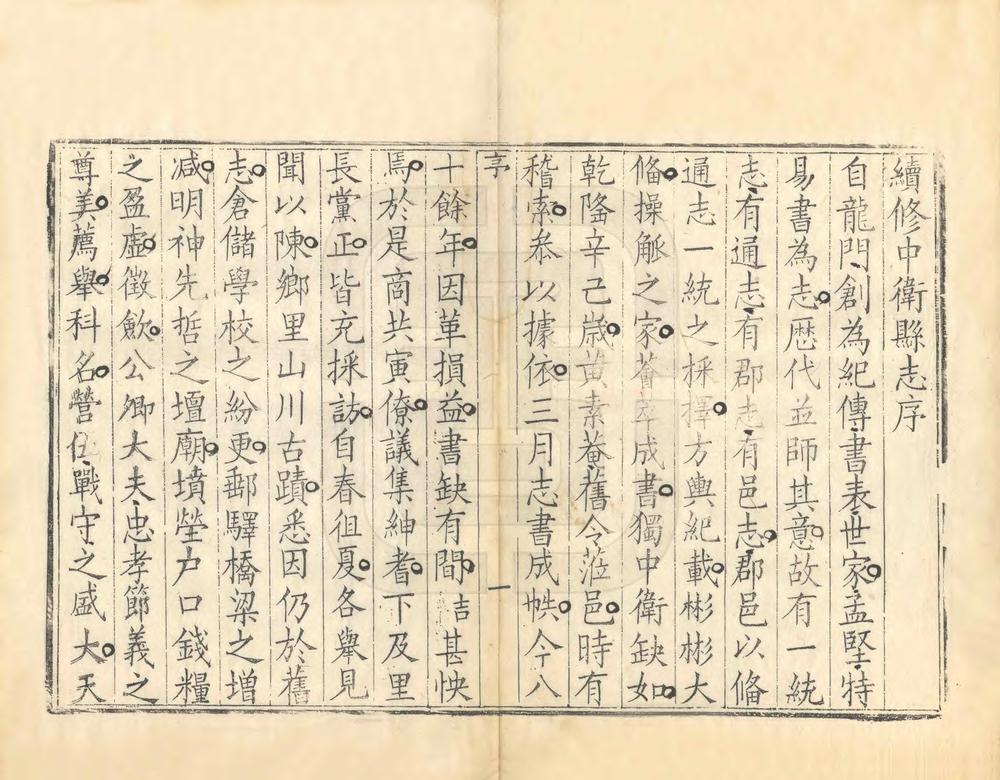 續修中衛縣志序
自龍門創為紀傳書表世家孟堅特
易書為志歷代並師其意故有一統
志有通志有郡志有邑志郡邑以備
通志一統之採擇方輿紀載彬彬大
備操觚之家薈萃成書獨中衛缺如
乾隆辛己歲黃素菴舊令蒞邑時有
稽索叅以據依三月志書成帙今八
序 一
十餘年因革損益書缺有間吉甚怏
焉於是商共寅僚議集紳耆下及里
長黨正皆充採訪自春徂夏各舉見
聞以陳鄉里山川古蹟悉因仍於舊
志倉儲學校之紛更郵驛橋梁之增
減明神先哲之壇廟墳塋户口錢糧
之盈虛徵歛公卿大夫忠孝節義之
尊美薦舉科名營伍戰守之盛大天